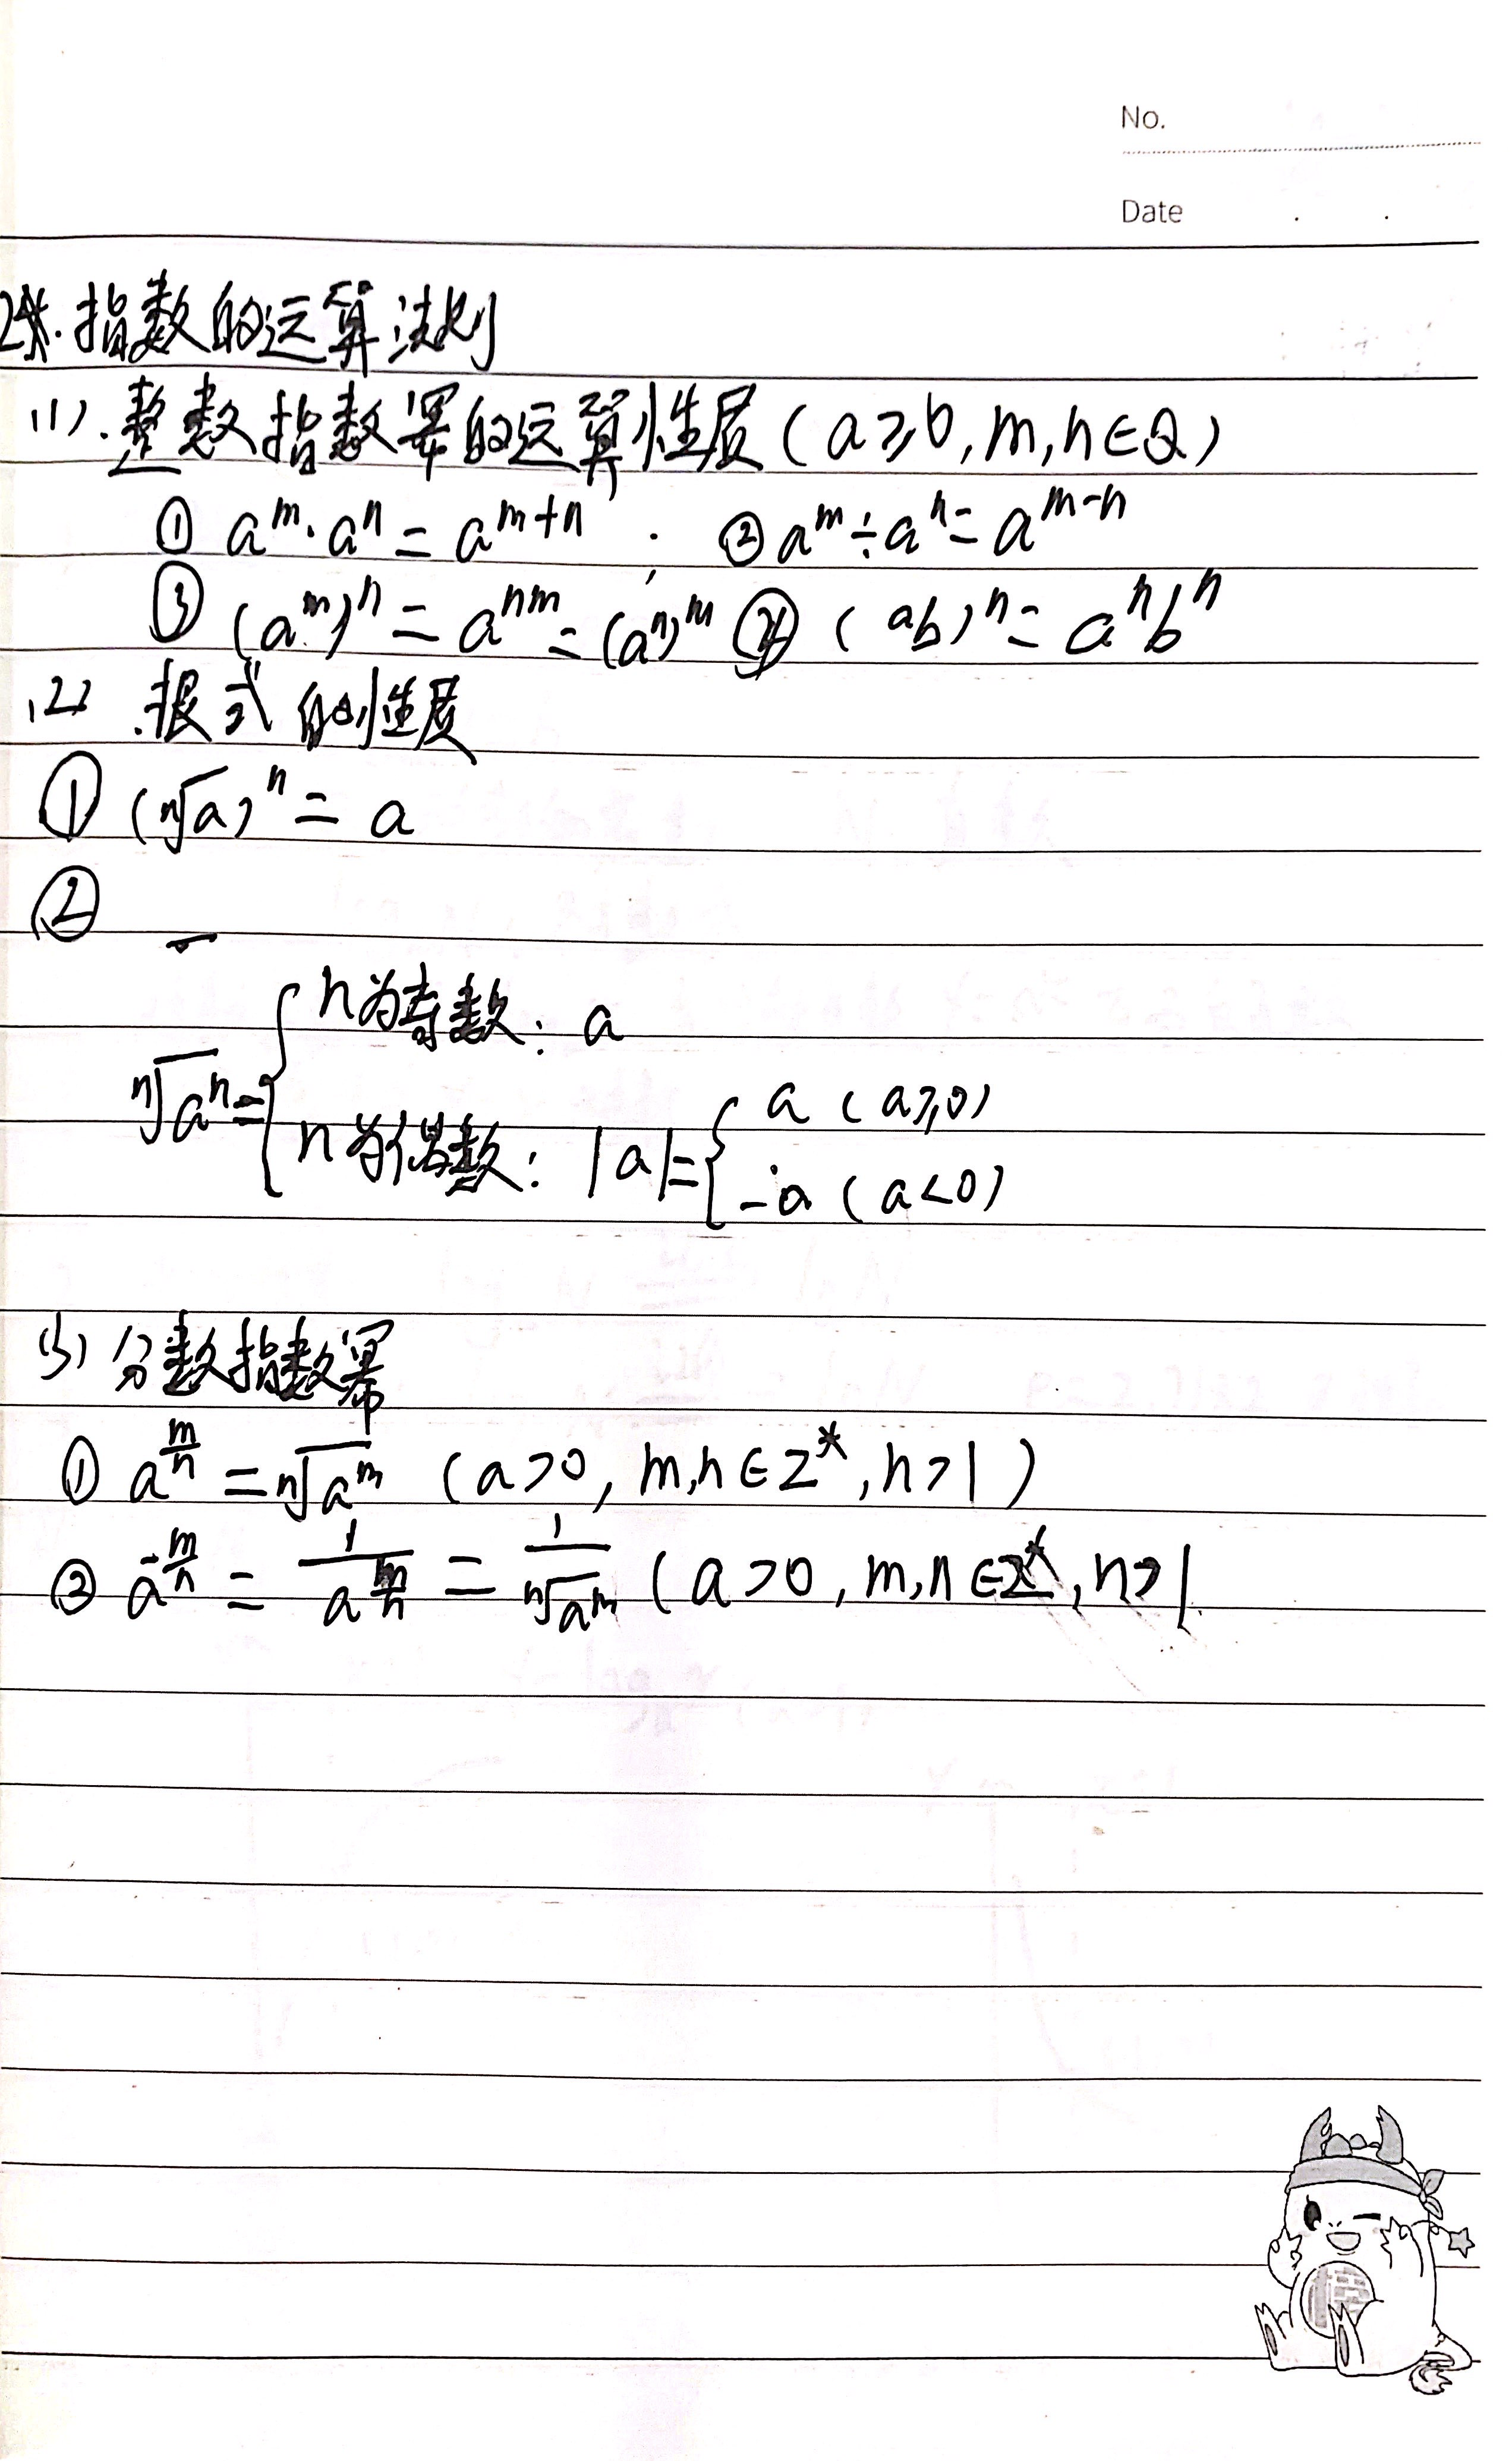 No.
Date . .
2*.指数的运算法则
(1).整数指数幂的运算性质(a≥0,m,n∈Q)
① aᵐ·aⁿ=aᵐ⁺ⁿ ; ②aᵐ÷aⁿ=aᵐ⁻ⁿ
③ (aᵐ)ⁿ=aⁿᵐ=(aⁿ)ᵐ ④ (ab)ⁿ=aⁿbⁿ
(2) .根式的性质
① (ⁿ√a)ⁿ=a
②
ⁿ√aⁿ={n为奇数: a
n为偶数: |a|={a (a≥0)
-a (a<0)
(3)分数指数幂
① a^(m/n)=ⁿ√aᵐ (a>0, m,n∈Z*,n>1)
② a^(-m/n)=1/a^(m/n)=1/ⁿ√aᵐ (a>0,m,n∈Z*,n>1